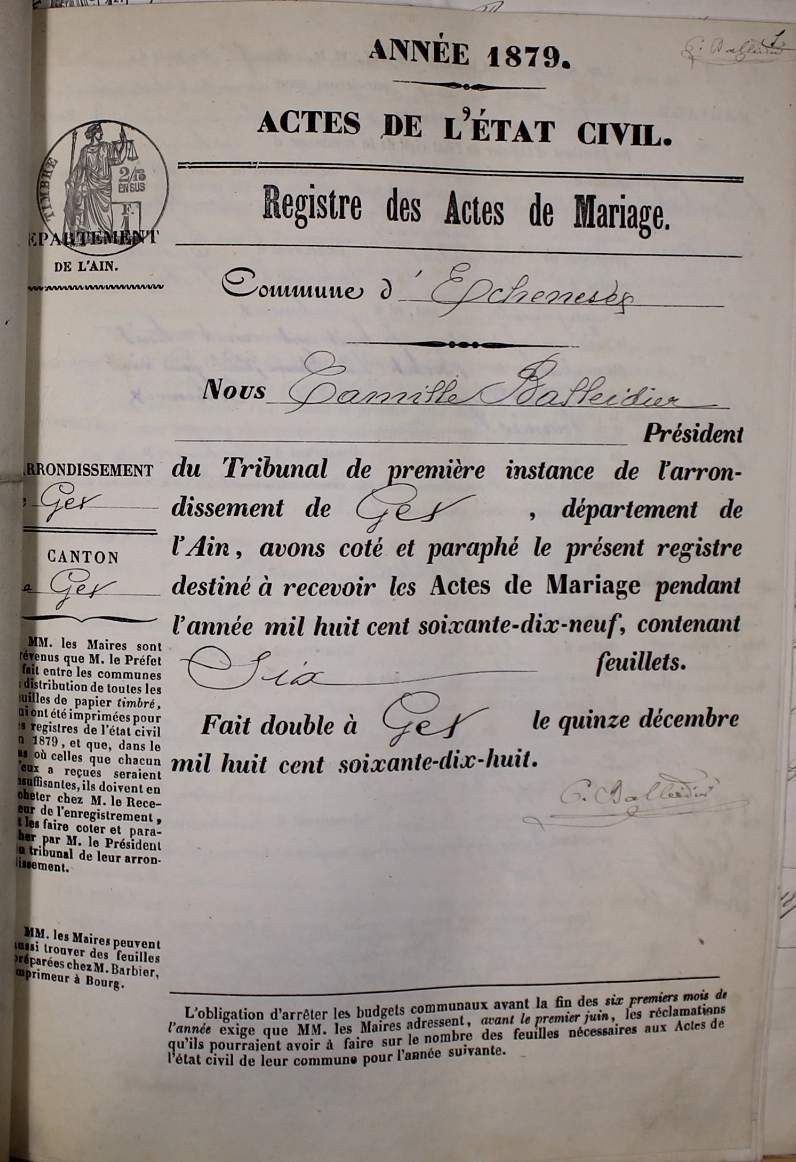 C. Balleidier 1
ANNÉE 1879.
ACTES DE L'ÉTAT CIVIL.
TIMBRE
2/10
EN SUS
F.
1
Registre des Actes de Mariage.
EPARTEMENT
DE L'AIN.
Commune d'Echenevex
Nous Camille Balleidier
Président
du Tribunal de première instance de l'arron-
dissement de Gex, département de
l'Ain, avons coté et paraphé le présent registre
destiné à recevoir les Actes de Mariage pendant
l'année mil huit cent soixante-dix-neuf, contenant
Six feuillets.
Fait double à Gex le quinze décembre
mil huit cent soixante-dix-huit.
C. Balleidier
RRONDISSEMENT
Gex
CANTON
Gex
MM. les Maires sont
révenus que M. le Préfet
fait entre les communes
distribution de toutes les
uilles de papier timbré,
ui ont été imprimées pour
s registres de l'état civil
n 1879, et que, dans le
as où celles que chacun
'eux a reçues seraient
suffisantes, ils doivent en
cheter chez M. le Rece-
eur de l'enregistrement,
t les faire coter et para-
her par M. le Président
u tribunal de leur arron-
issement.
MM. les Maires peuvent
ussi trouver des feuilles
réparées chez M. Barbier,
mprimeur à Bourg.
L'obligation d'arrêter les budgets communaux avant la fin des six premiers mois de
l'année exige que MM. les Maires adressent, avant le premier juin, les réclamations
qu'ils pourraient avoir à faire sur le nombre des feuilles nécessaires aux Actes de
l'état civil de leur commune pour l'année suivante.